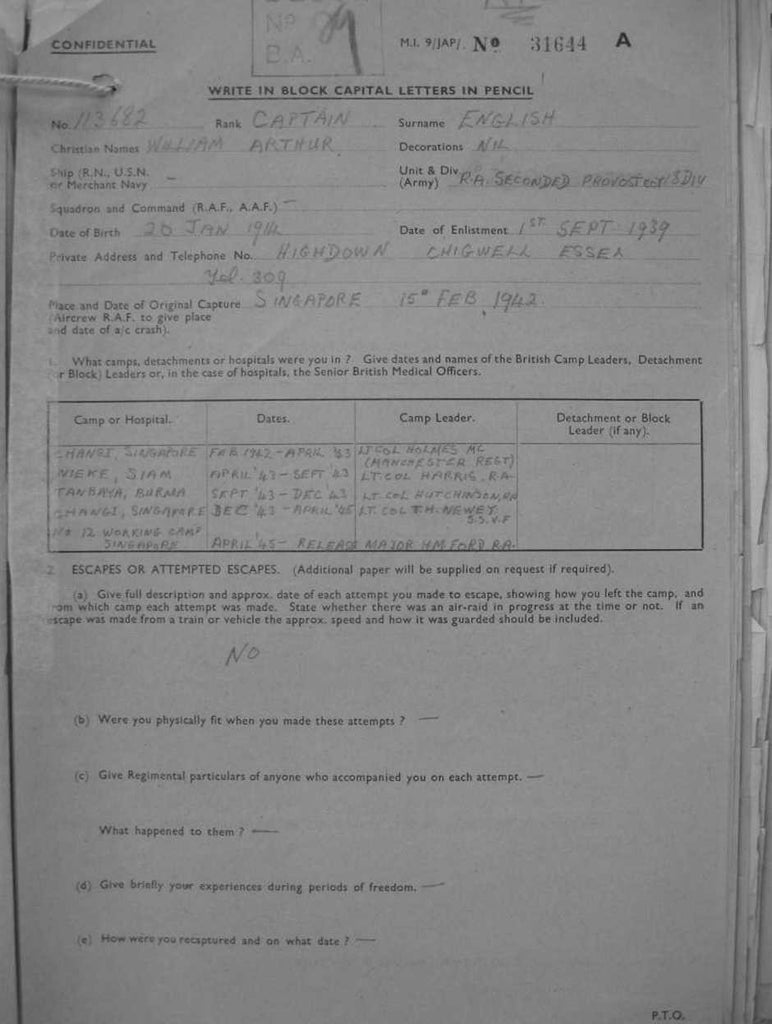 No
B.A.
CONFIDENTIAL
M.I. 9/JAP/. No 31644 A
WRITE IN BLOCK CAPITAL LETTERS IN PENCIL
No. 113682 Rank CAPTAIN Surname ENGLISH
Christian Names WILLIAM ARTHUR Decorations NIL
Ship (R.N., U.S.N. or Merchant Navy —
Unit & Div. (Army) R.A. SECONDED PROVOST 18 DIV
Squadron and Command (R.A.F., A.A.F.) —
Date of Birth 20 JAN 1914 Date of Enlistment 1ST SEPT 1939
Private Address and Telephone No. HIGHDOWN CHIGWELL ESSEX
Tel. 309
Place and Date of Original Capture SINGAPORE 15" FEB 1942.
(Aircrew R.A.F. to give place
and date of a/c crash).
1. What camps, detachments or hospitals were you in ? Give dates and names of the British Camp Leaders, Detachment
(or Block) Leaders or, in the case of hospitals, the Senior British Medical Officers.
Camp or Hospital. Dates. Camp Leader. Detachment or Block Leader (if any).
CHANGI, SINGAPORE FEB 1942 - APRIL '43 LT COL HOLMES MC (MANCHESTER REGT)
NIEKE, SIAM APRIL '43 - SEPT '43 LT. COL HARRIS, R.A.
TANBAYA, BURMA SEPT '43 - DEC '43 LT. COL HUTCHINSON, RA
CHANGI, SINGAPORE DEC '43 - APRIL '45 LT. COL T.H. NEWEY S.S.V.F
No 12 WORKING CAMP SINGAPORE APRIL '45 - RELEASE MAJOR H.M. FORD R.A.
2. ESCAPES OR ATTEMPTED ESCAPES. (Additional paper will be supplied on request if required).
(a) Give full description and approx. date of each attempt you made to escape, showing how you left the camp, and
from which camp each attempt was made. State whether there was an air-raid in progress at the time or not. If an
escape was made from a train or vehicle the approx. speed and how it was guarded should be included.
NO
(b) Were you physically fit when you made these attempts ? —
(c) Give Regimental particulars of anyone who accompanied you on each attempt. —
What happened to them ? —
(d) Give briefly your experiences during periods of freedom. —
(e) How were you recaptured and on what date ? —
P.T.O.